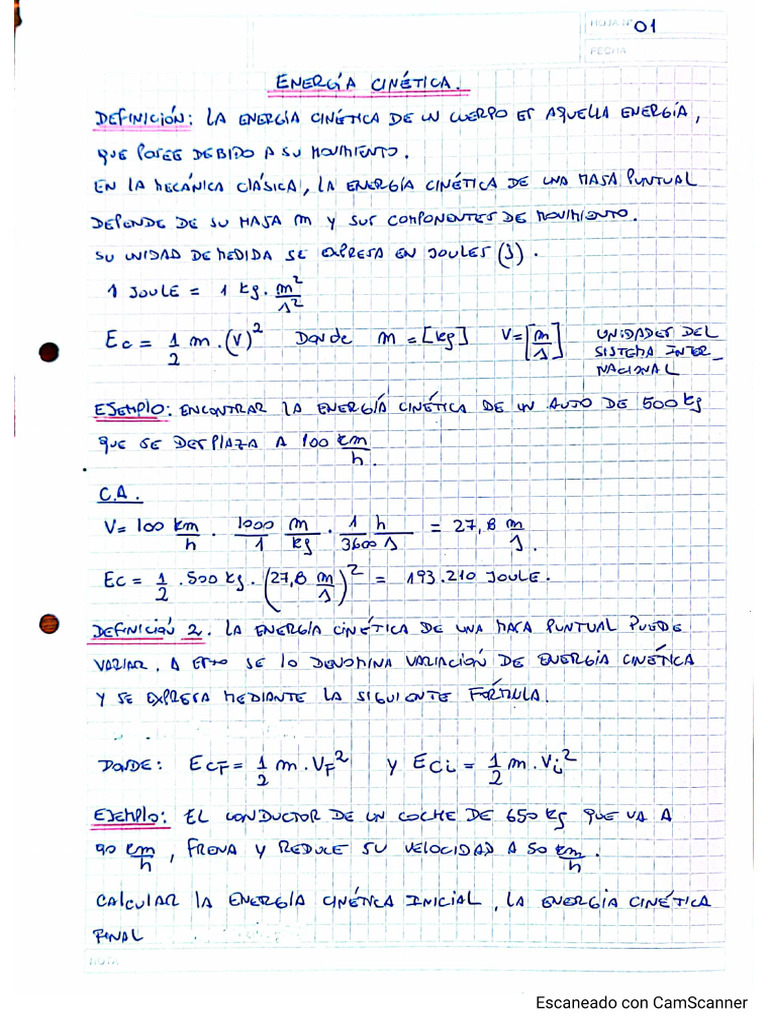 HOJA Nº 01
FECHA
ENERGÍA CINÉTICA.
DEFINICIÓN: LA ENERGÍA CINÉTICA DE UN CUERPO ES AQUELLA ENERGÍA,
QUE POSEE DEBIDO A SU MOVIMIENTO.
EN LA MECÁNICA CLÁSICA, LA ENERGÍA CINÉTICA DE UNA MASA PUNTUAL
DEPENDE DE SU MASA m Y SUS COMPONENTES DE MOVIMIENTO.
SU UNIDAD DE MEDIDA SE EXPRESA EN JOULES (J).
1 JOULE = 1 kg . m²/s²
Ec = 1/2 m . (V)² Donde m = [kg] V = [m/s] UNIDADES DEL
SISTEMA INTER_
NACIONAL
EJEMPLO: ENCONTRAR LA ENERGÍA CINÉTICA DE UN AUTO DE 500 kg
QUE SE DESPLAZA A 100 km/h.
C.A.
V = 100 km/h . 1000/1 m/kg . 1/3600 h/s = 27,8 m/s.
Ec = 1/2 . 500 kg . (27,8 m/s)² = 193.210 JOULE.
DEFINICIÓN 2. LA ENERGÍA CINÉTICA DE UNA MASA PUNTUAL PUEDE
VARIAR. A ESTO SE LO DENOMINA VARIACIÓN DE ENERGÍA CINÉTICA
Y SE EXPRESA MEDIANTE LA SIGUIENTE FÓRMULA.
DONDE: ECF = 1/2 m . VF² Y ECi = 1/2 m . Vi²
EJEMPLO: EL CONDUCTOR DE UN COCHE DE 650 kg QUE VA A
90 km/h, FRENA Y REDUCE SU VELOCIDAD A 50 km/h.
CALCULAR LA ENERGÍA CINÉTICA INICIAL, LA ENERGÍA CINÉTICA
FINAL
NOTA
Escaneado con CamScanner